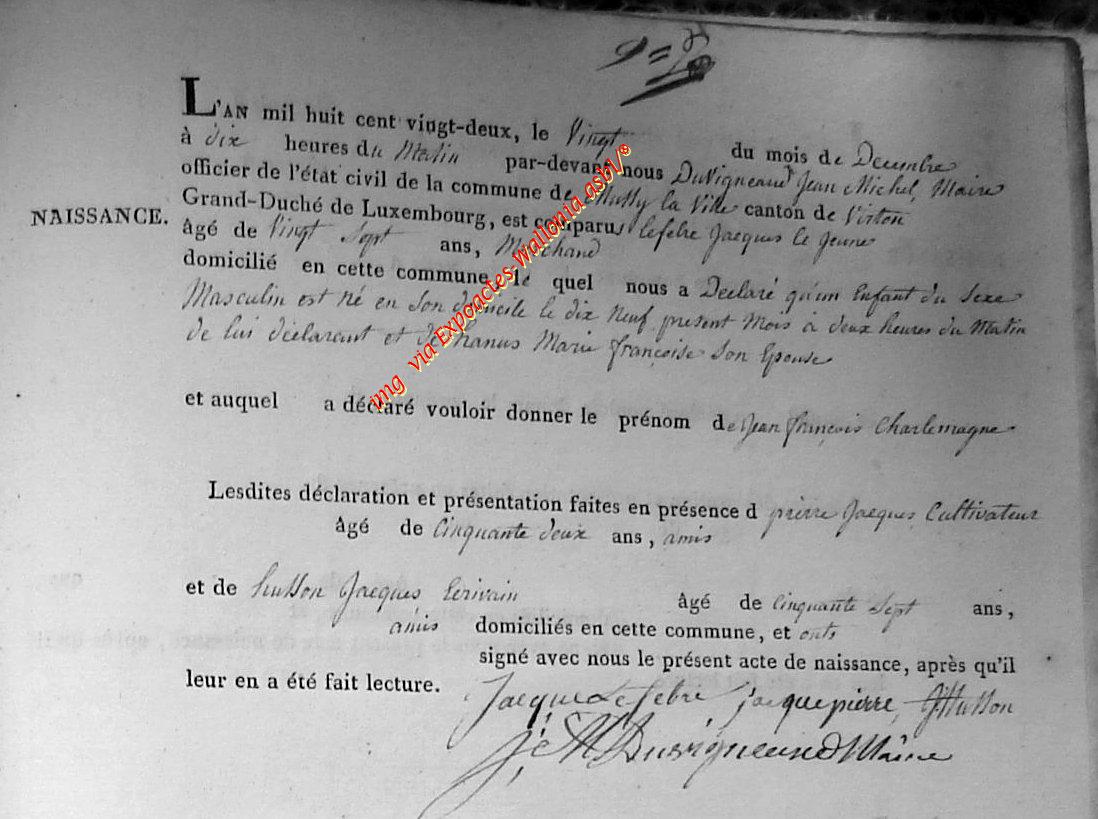 L'AN mil huit cent vingt-deux, le Vingt du mois de Decembre
à dix heures du Matin par-devant nous DuVigneaud Jean Michel, Maire
officier de l'état civil de la commune de Mussy la Ville canton de Virton
Grand-Duché de Luxembourg, est comparu lefebre Jacques le jeune
NAISSANCE.
âgé de Vingt Sept ans, Marchand
domicilié en cette commune, le quel nous a Declaré qu'un Enfant du Sexe
Masculin est né en Son domicile le dix Neuf present Mois à deux heures du Matin
de lui déclarant et de hanus Marie françoise Son Epouse
et auquel a déclaré vouloir donner le prénom de Jean françois Charlemagne
Lesdites déclaration et présentation faites en présence d pierre Jacques Cultivateur
âgé de Cinquante deux ans, amis
et de husson Jacques Ecrivain âgé de Cinquante Sept ans,
amis domiciliés en cette commune, et onts
signé avec nous le présent acte de naissance, après qu'il
leur en a été fait lecture.
Jacque Lefebre jacque pierre, JHusson
J M Duvigneaud Maire
img via Expoactes-Wallonia asbl/®